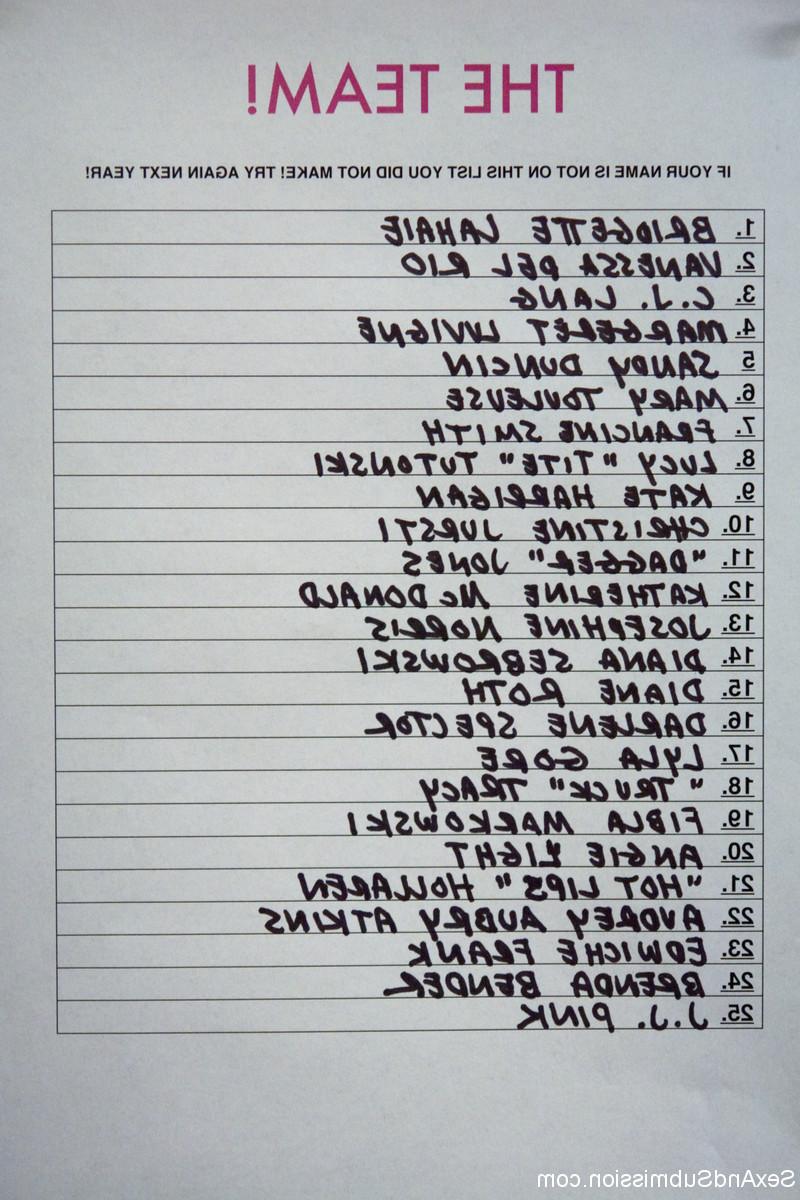 THE TEAM!
IF YOUR NAME IS NOT ON THIS LIST YOU DID NOT MAKE! TRY AGAIN NEXT YEAR!
1. BRIDGETTE LAHAIE
2. VANESSA DEL RIO
3. C.J. LANG
4. MARGERET LUVIGNE
5 SANDY DUNCIN
6. MARY TOULEUSE
7. FRANCINE SMITH
8. LUCY "TITE" TUTONSKI
9. KATE HARRIGAN
10. CHRISTINE JURSTI
11. "DAGGER" JONES
12. KATHERINE McDONALD
13. JOSEPHINE NORRIS
14. DIANA SEBROWSKI
15. DIANE ROTH
16. DARLENE SPECTOR
17. LYLA GORE
18. "TRUCK" TRACY
19. FIBLA MARKOWSKI
20. ANGIE LIGHT
21. "HOT LIPS" HOLLAREN
22. AUDREY AUBRY ATKINS
23. EDWICHE FRANK
24. BRENDA BENDER
25. J.J. PINK
SexAndSubmission.com